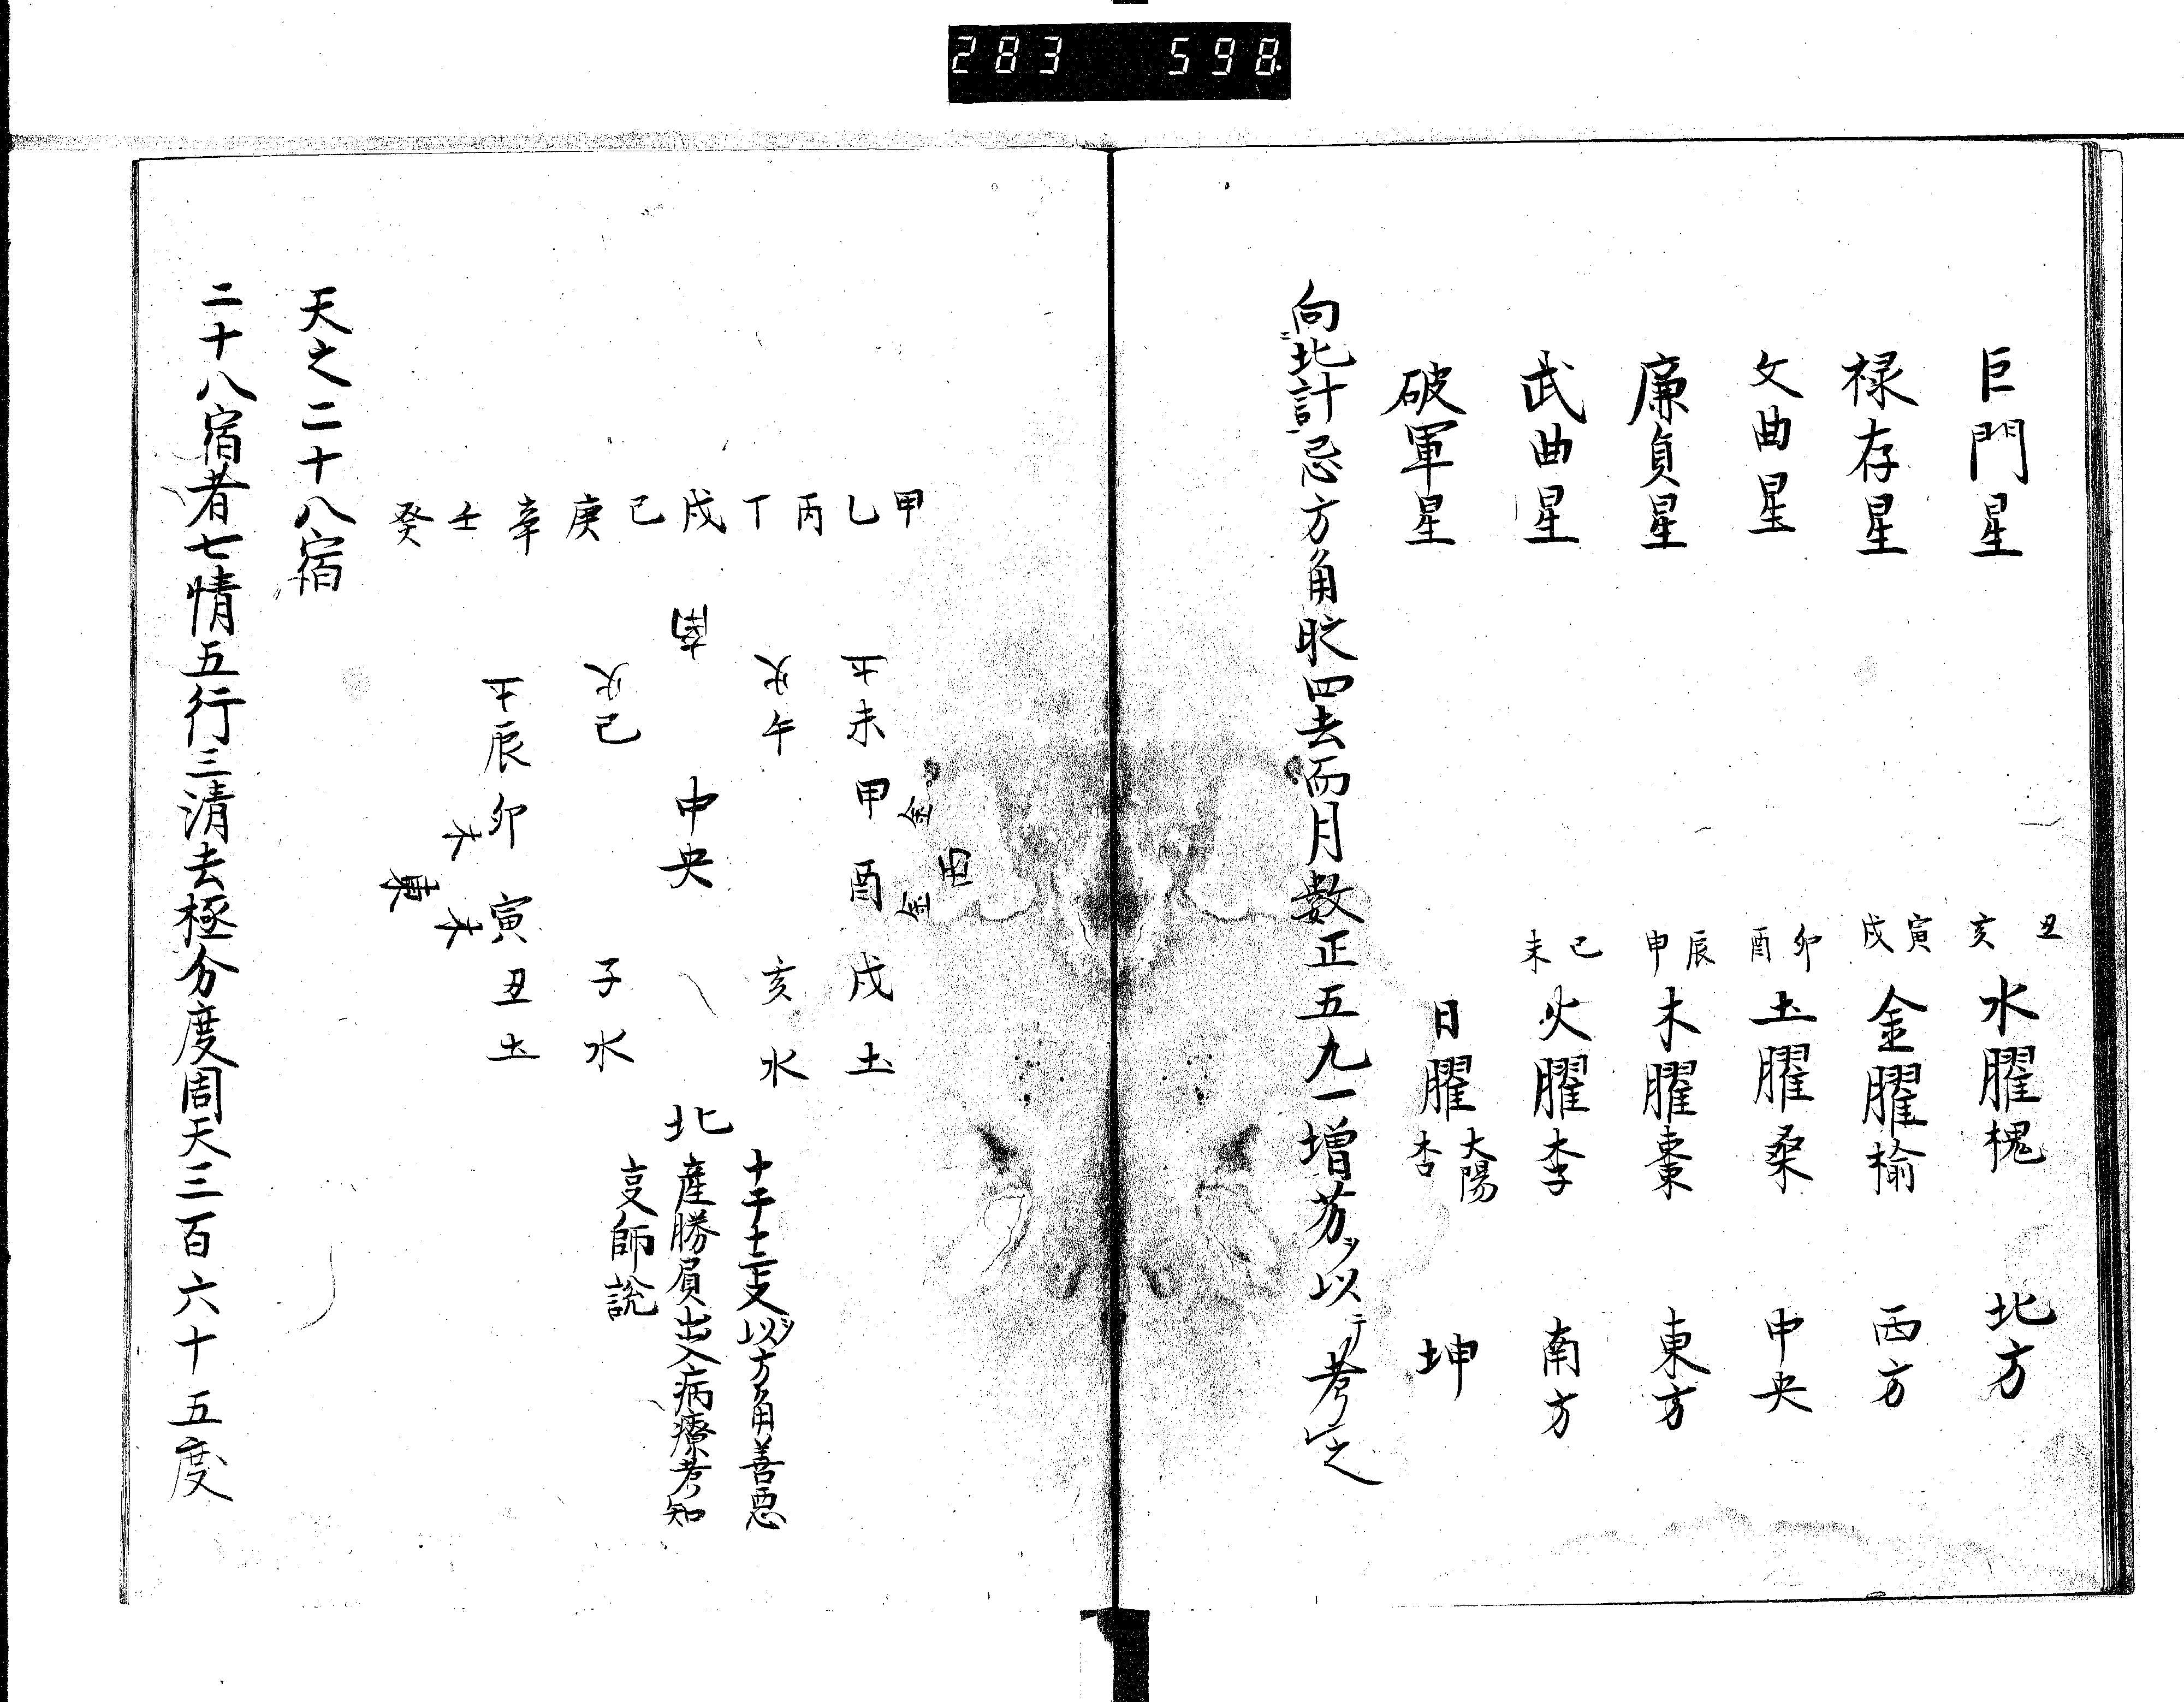 283 598
巨門星 丑亥 水曜 槐 北方
禄存星 寅戌 金曜 楡 西方
文曲星 卯酉 土曜 桑 中央
廉貞星 辰申 木曜 棗 東方
武曲星 巳未 火曜 李 南方
破軍星 日曜 大陽 杏 坤
向北計忌方角 四去而月数正五九一増 以 考之
甲乙丙丁戊己庚辛壬癸
土未甲酉戌土
金西金
火午 亥水
南 中央 北
火巳 子水
土辰卯寅丑土
木東木
十干十二支以方角善悪
産勝負出入病療考知
支師説
天之二十八宿
二十八宿者七情五行三清去極分度周天三百六十五度